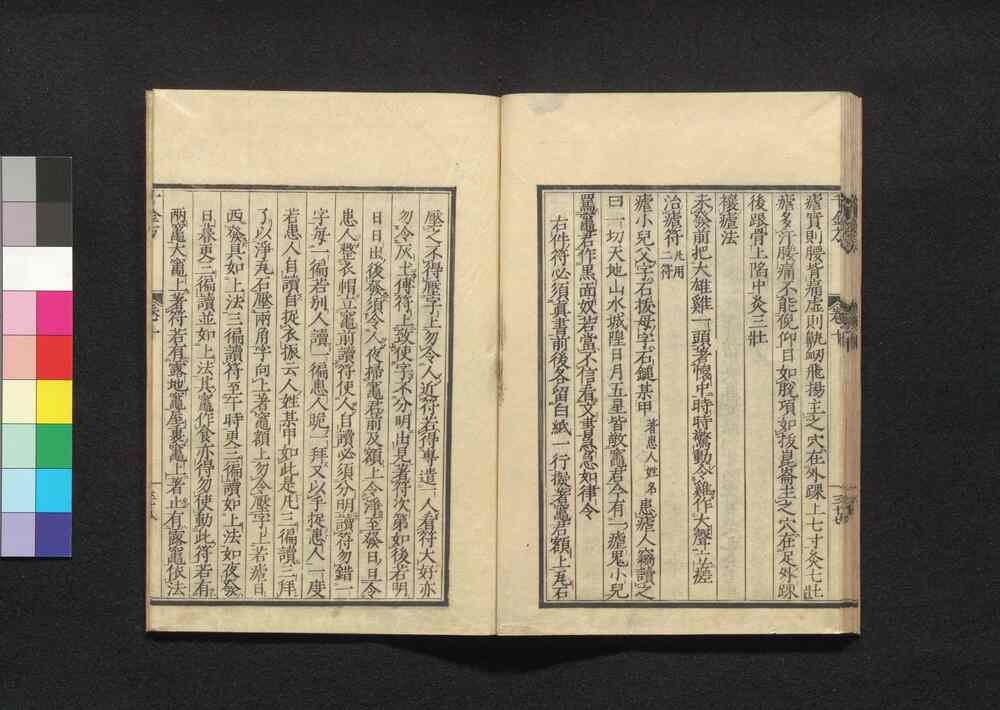 瘧實則腰背痛虛則鼽衂飛揚主之穴在外踝上七寸灸七壯
瘧多汗腰痛不能俛仰目如脫項如拔崑崙主之穴在足外踝
後跟骨上陷中灸三壯
禳瘧法
未發前抱大雄雞一頭著懷中時時驚動令雞作大聲立差
治瘧符凡用二符
瘧小兒父字石拔母字石鎚某甲著患人姓名患瘧人竊讀之
曰一切天地山水城隍日月五星皆敬竈君今有一瘧鬼小兒
罵竈君作黑面奴若當不信看文書急急如律令
右件符必須真書前後各留白紙一行擬著竈君額上瓦石
壓之不得壓字上勿令人近符若得專遣一人看符大好亦
勿令灰土傅符上致使字不分明出見著符次第如後若明
日日出後發須令人夜掃竈君前及額上令淨至發日旦令
患人整衣帽立竈前讀符使人自讀必須分明讀符勿錯一
字每一徧若別人讀一徧患人跪一拜又以手捉患人一度
若患人自讀自捉衣振云人姓某甲如此是凡三徧讀三拜
了以淨瓦石壓兩角字向上著竈額上勿令壓字上若瘧日
西發具如上法三徧讀符至午時更三徧讀如上法如夜發
日暮更三徧讀並如上法其竈作食亦得勿使動此符若有
兩竈大竈上著符若有露地竈屋裏竈上著止有露竈依法